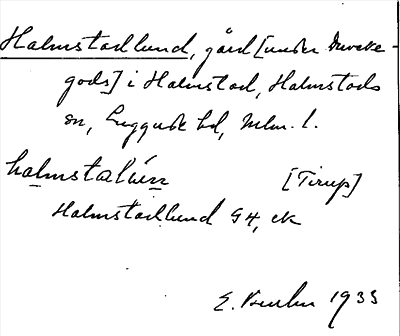 Halmstadlund, gård [under Duveke-
gods] i Halmstad, Halmstads
sn, Luggude hd, Mlm. l.
halmstalúnn [Tirup]
Halmstadlund G4, ek
E. 1935